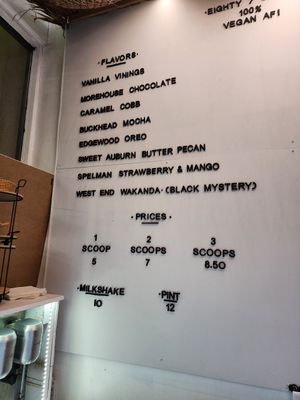 EIGHTY /
100%
VEGAN AF!
· FLAVORS ·
VANILLA VININGS
MOREHOUSE CHOCOLATE
CARAMEL COBB
BUCKHEAD MOCHA
EDGEWOOD OREO
SWEET AUBURN BUTTER PECAN
SPELMAN STRAWBERRY & MANGO
WEST END WAKANDA · (BLACK MYSTERY)
· PRICES ·
1 2 3
SCOOP SCOOPS SCOOPS
5 7 8.50
· MILKSHAKE · PINT
10 12